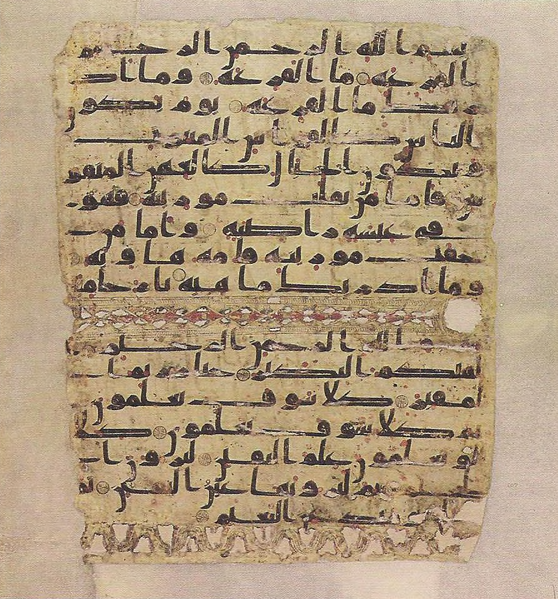 بسم الله الرحمن الرحيم
القرعه ما القرعه وما ادر
يك ما القرعه يوم يكون
الناس كالفراش المبثوث
وتكون الجبال كالعهن المنفو
ش فاما من ثقلت موزينه فهو
في عيشه راضيه واما من
خفت موزينه فامه هاويه
وما ادريك ما هيه نار حاميه
بسم الله الرحمن الرحيم
الهيكم التكثر حتى زرتم
المقبر كلا سوف تعلمون
ثم كلا سوف تعلمون كلا
لو تعلمون علم اليقين لترون ا
لجحيم ثم لترونها عين اليقين ثم
لتسلن يومئذ عن النعيم